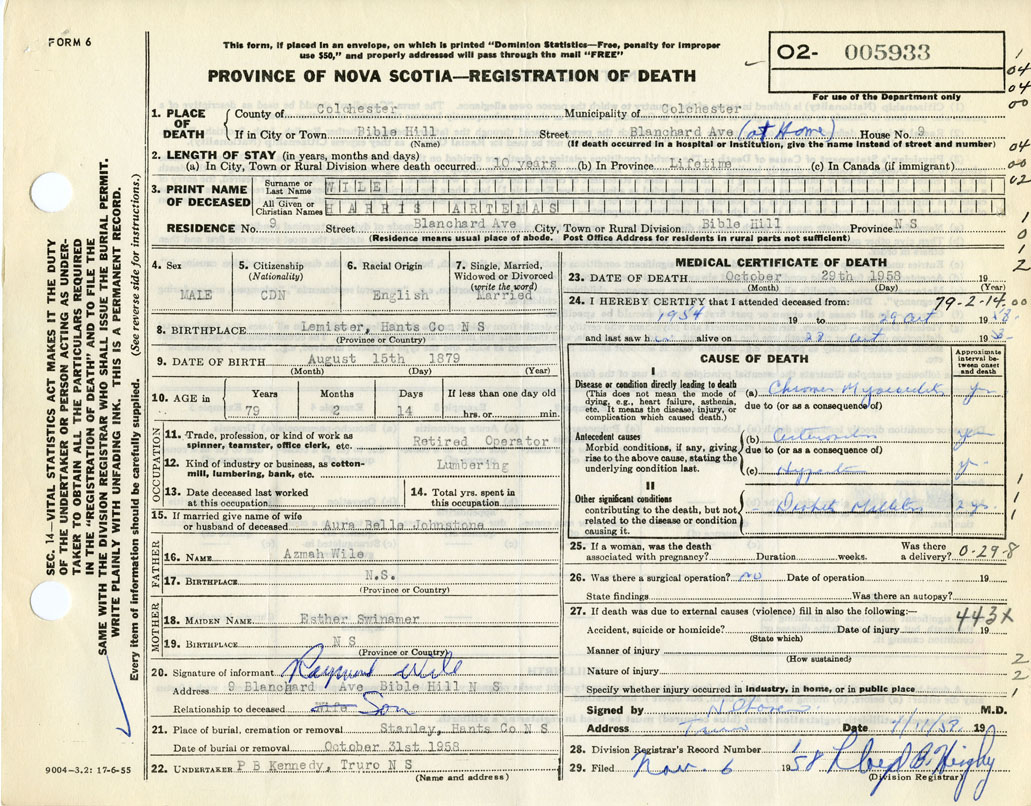 FORM 6
This form, if placed in an envelope, on which is printed "Dominion Statistics—Free, penalty for improper
use $50," and properly addressed will pass through the mail "FREE"
PROVINCE OF NOVA SCOTIA—REGISTRATION OF DEATH
02- 005933
For use of the Department only
1
04
04
00
04
00
02
1
0
1
2
1. PLACE OF DEATH
County of Colchester Municipality of Colchester
If in City or Town Bible Hill Street Blanchard Ave (at Home) House No. 9
(Name) (If death occurred in a hospital or Institution, give the name instead of street and number)
2. LENGTH OF STAY (in years, months and days)
(a) In City, Town or Rural Division where death occurred 10 years (b) In Province Lifetime (c) In Canada (if immigrant)
3. PRINT NAME OF DECEASED
Surname or Last Name WILE
All Given or Christian Names HARRIS ARTEMAS
RESIDENCE No. 9 Street Blanchard Ave City, Town or Rural Division Bible Hill Province N S
(Residence means usual place of abode. Post Office Address for residents in rural parts not sufficient)
4. Sex
MALE
5. Citizenship
(Nationality)
CDN
6. Racial Origin
English
7. Single, Married,
Widowed or Divorced
(write the word)
Married
8. BIRTHPLACE Lemister, Hants Co N S
(Province or Country)
9. DATE OF BIRTH August 15th 1879
(Month) (Day) (Year)
10. AGE in
Years Months Days If less than one day old
79 2 14 hrs. or min.
OCCUPATION
11. Trade, profession, or kind of work as
spinner, teamster, office clerk, etc. Retired Operator
12. Kind of industry or business, as cotton-
mill, lumbering, bank, etc. Lumbering
13. Date deceased last worked
at this occupation
14. Total yrs. spent in
this occupation
15. If married give name of wife
or husband of deceased Aura Belle Johnstone
FATHER
16. NAME Azmah Wile
17. BIRTHPLACE N.S.
(Province or Country)
MOTHER
18. MAIDEN NAME Esther Swinamer
19. BIRTHPLACE N S
(Province or Country)
20. Signature of informant Raymond Wile
Address 9 Blanchard Ave Bible Hill N S
Relationship to deceased Wife Son
21. Place of burial, cremation or removal Stanley, Hants Co N S
Date of burial or removal October 31st 1958
22. UNDERTAKER P B Kennedy, Truro N S
(Name and address)
MEDICAL CERTIFICATE OF DEATH
23. DATE OF DEATH October 29th 1958 19
(Month) (Day) (Year)
24. I HEREBY CERTIFY that I attended deceased from: 79-2-14 00
1954 19 to 29 Oct 19 58
and last saw h im alive on 28 Oct 19 58
CAUSE OF DEATH
Approximate
interval be-
tween onset
and death
I
Disease or condition directly leading to death
(This does not mean the mode of
dying, e.g., heart failure, asthenia,
etc. It means the disease, injury, or
complication which caused death.)
(a) Chronic Myocarditis yrs
due to (or as a consequence of)
Antecedent causes
Morbid conditions, if any, giving
rise to the above cause, stating the
underlying condition last.
(b) yrs
due to (or as a consequence of)
(c) yrs
II
Other significant conditions
contributing to the death, but not
related to the disease or condition
causing it.
Diabetes Mellitus 2 yrs.
1
1
1
25. If a woman, was the death
associated with pregnancy? Duration weeks. Was there
a delivery? 0-29-8
26. Was there a surgical operation? no Date of operation 19
State findings Was there an autopsy?
27. If death was due to external causes (violence) fill in also the following:—
443X
Accident, suicide or homicide? Date of injury 19
(State which)
Manner of injury
(How sustained)
Nature of injury
Specify whether injury occurred in industry, in home, or in public place
2
2
1
Signed by M.D.
Address Truro Date 4/11/58 19
28. Division Registrar's Record Number
29. Filed Nov. 6 1958
(Division Registrar)
SEC. 14—VITAL STATISTICS ACT MAKES IT THE DUTY
OF THE UNDERTAKER OR PERSON ACTING AS UNDER-
TAKER TO OBTAIN ALL THE PARTICULARS REQUIRED
IN THE "REGISTRATION OF DEATH" AND TO FILE THE
SAME WITH THE DIVISION REGISTRAR WHO SHALL ISSUE THE BURIAL PERMIT.
WRITE PLAINLY WITH UNFADING INK. THIS IS A PERMANENT RECORD.
Every item of information should be carefully supplied. (See reverse side for instructions.)
9004-3,2: 17-6-55